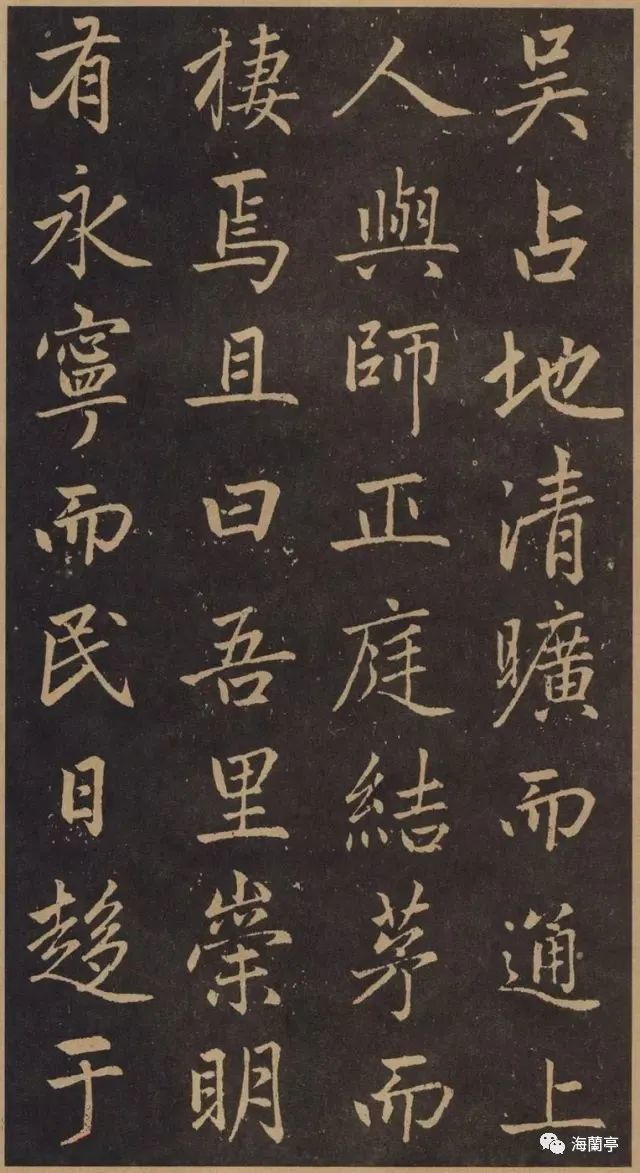 吴占地清曠而通上
人與師正庭結茅而
棲焉且曰吾里崇明
有永寧而民日趍于
海蘭亭